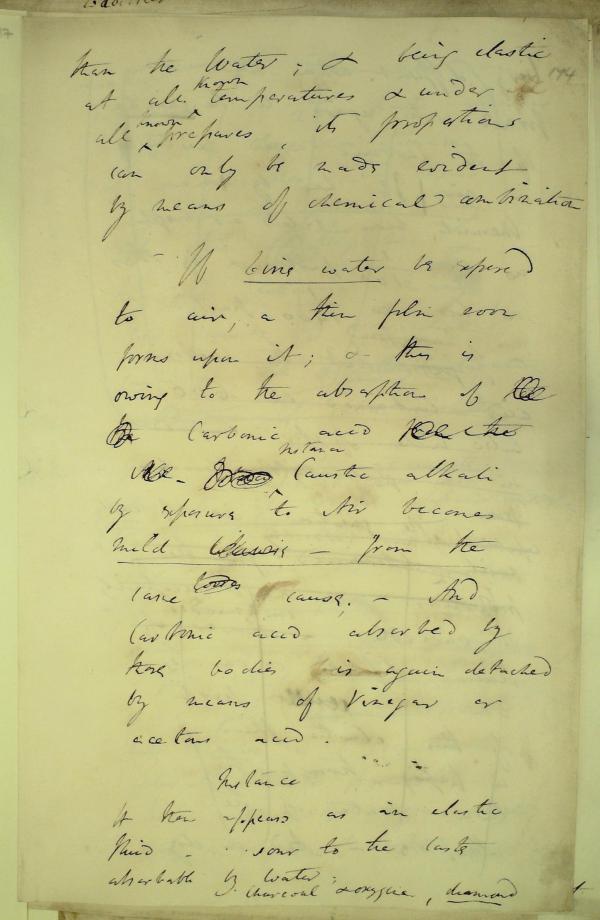 than the Water; & being elastic
174
at all known temperatures & under
all known pressures, its proportions
can only be made evident
by means of chemical combination
- If lime water be exposed
to air, a thin film soon
forms upon it; & this is
owing to the absorption of
Carbonic acid
Instance
Caustic alkali
by exposure to Air becomes
mild - from the
same cause. - And
Carbonic acid absorbed by
these bodies is again detached
by means of Vinegar or
acetous acid.
Instance
It then appears as an elastic
fluid - sour to the taste
absorbable by water:
Charcoal & oxygene, diamond